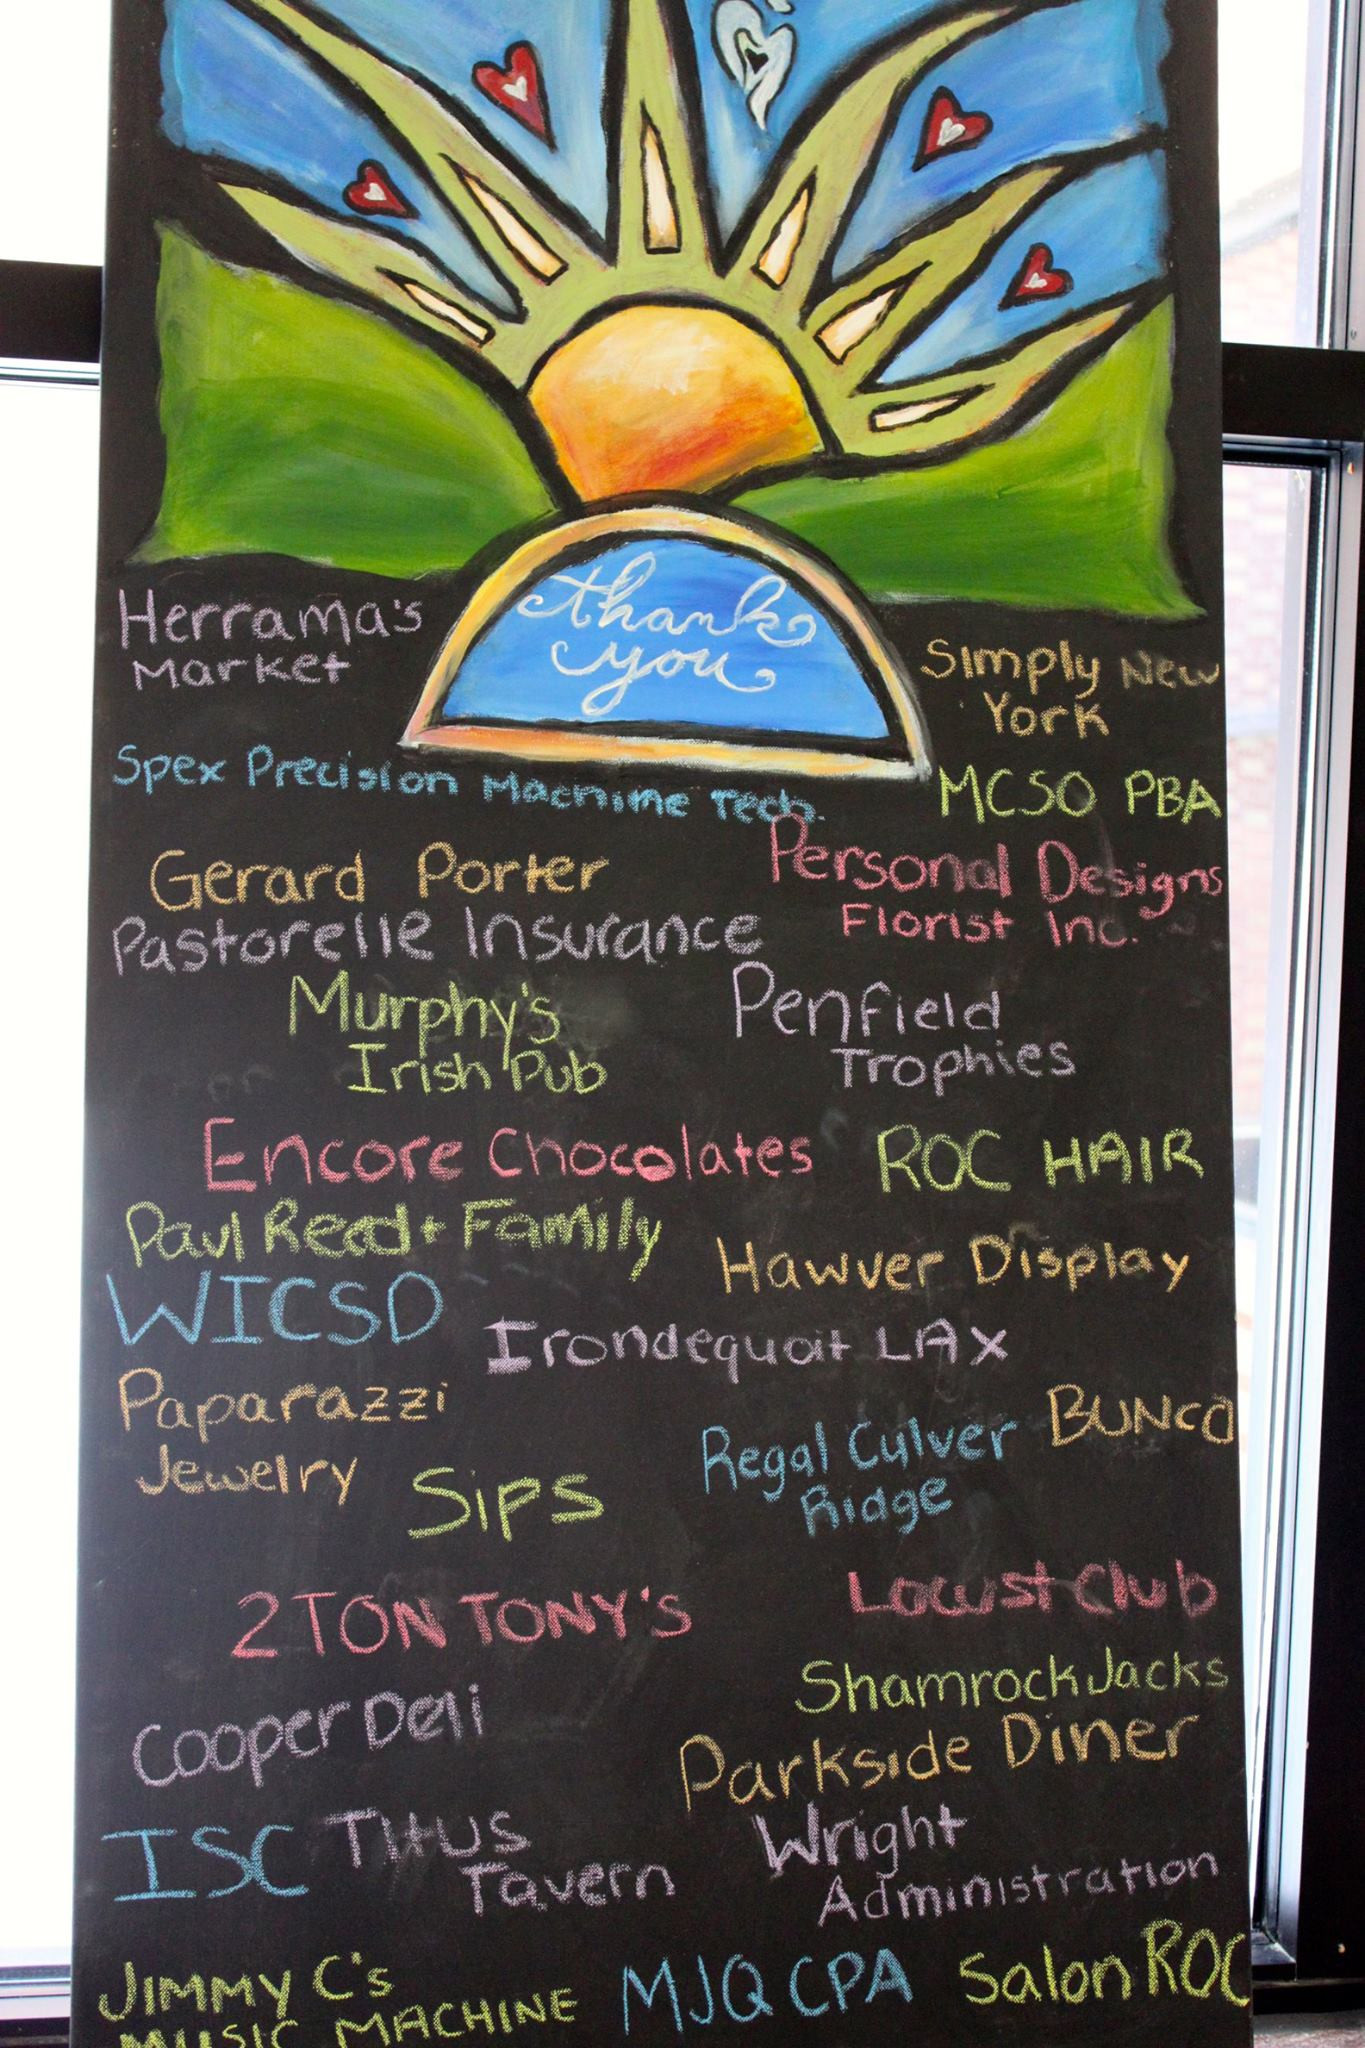 thank
you
Herrama's
Market
Simply New
York
Spex Precision Machine Tech.
MCSO PBA
Gerard Porter
Personal Designs
Florist Inc.
Pastorelle Insurance
Murphy's
Irish Pub
Penfield
Trophies
Encore Chocolates
ROC HAIR
Paul Reed + Family
Hawver Display
WICSD
Irondequoit LAX
Paparazzi
Jewelry
BUNCO
Regal Culver
Ridge
Sips
2 TON TONY'S
Locust Club
Shamrock Jacks
Cooper Deli
Parkside Diner
ISC
Titus
Tavern
Wright
Administration
JIMMY C's
MUSIC MACHINE
MJQ CPA
Salon ROC